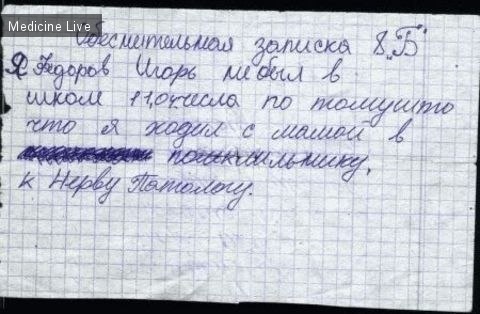 Medicine Live
Обеснительная записка 8 „Б"
Я Федоров Игорь небыл в
школ 11,04числа по томушто
что я ходил с мамой в
к Нерву Патологу.